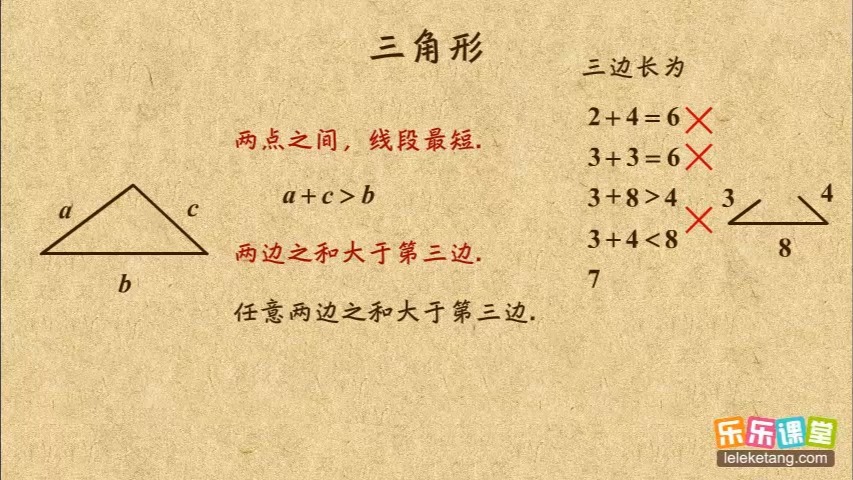 三角形
三边长为
两点之间，线段最短.
a+c>b
两边之和大于第三边.
任意两边之和大于第三边.
a
c
b
2+4=6
3+3=6
3+8>4
3+4<8
7
3
4
8
乐乐课堂
leleketang.com